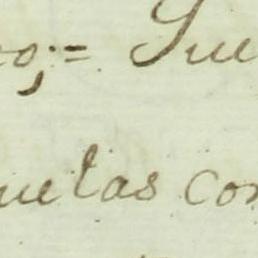 o;= Sue
uelas con